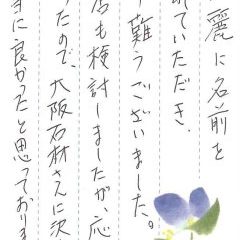 麗に名前を
れていただき、
難うございました。
店も検討しましたが、応
ったので、大阪石材さんに決
に良かったと思っておりま